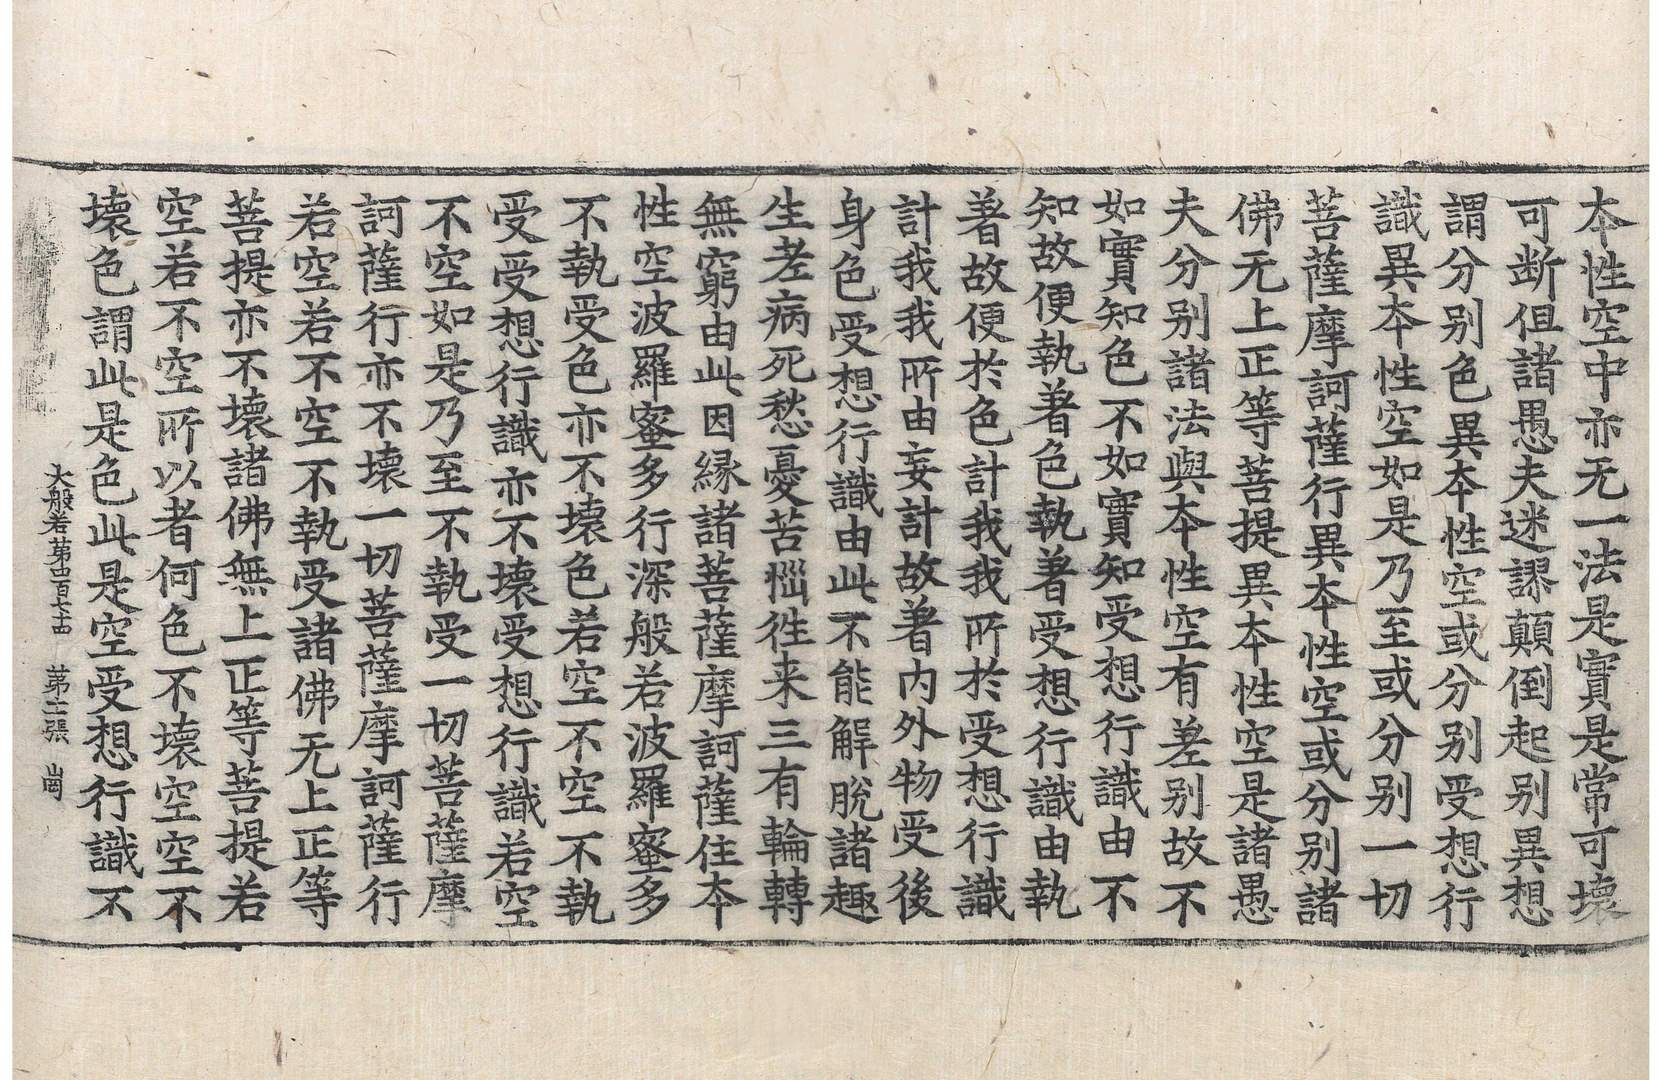 本性空中亦无一法是實是常可壞
可断但諸愚夫迷謬顛倒起别異想
謂分别色異本性空或分别受想行
識異本性空如是乃至或分别一切
菩薩摩訶薩行異本性空或分别諸
佛无上正等菩提異本性空是諸愚
夫分别諸法與本性空有差别故不
如實知色不如實知受想行識由不
知故便執著色執著受想行識由執
著故便於色計我我所於受想行識
計我我所由妄計故著内外物受後
身色受想行識由此不能解脫諸趣
生老病死愁憂苦惱往来三有輪轉
無窮由此因縁諸菩薩摩訶薩住本
性空波羅蜜多行深般若波羅蜜多
不執受色亦不壞色若空不空不執
受受想行識亦不壞受想行識若空
不空如是乃至不執受一切菩薩摩
訶薩行亦不壞一切菩薩摩訶薩行
若空若不空不執受諸佛无上正等
菩提亦不壞諸佛無上正等菩提若
空若不空所以者何色不壞空空不
壞色謂此是色此是空受想行識不
大般若第四百七十四 第十二張 崗